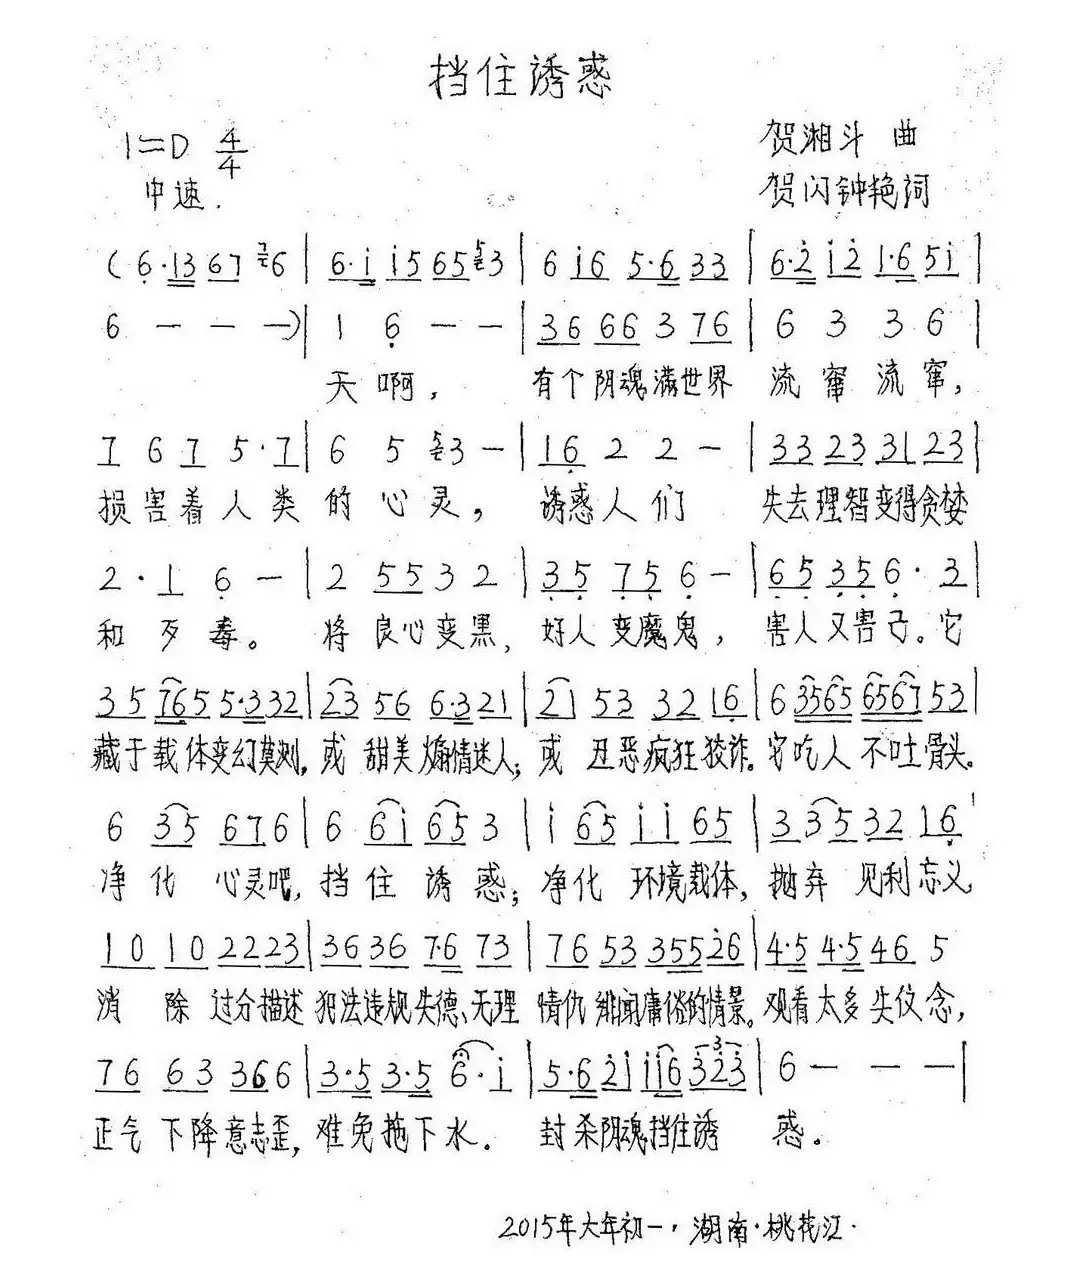 挡住诱惑
1=D 4/4
贺湘斗 曲
中速.
贺闪钟艳词
(6·13 67 76 | 6·i i5 65 53 | 6 i6 5·6 33 | 6·2 i2 1·6 5i |
6 — — —) | 1 6 — — | 36 66 3 76 | 6 3 3 6 |
天啊, 有个阴魂满世界 流窜流窜,
7 6 7 5·7 | 6 5 53 — | 16 2 2 — | 33 23 31 23 |
损害着人类的心灵, 诱惑人们 失去理智变得贪婪
2·1 6 — | 2 55 3 2 | 35 75 6 — | 65 35 6·3 |
和歹毒。 将良心变黑, 好人变魔鬼, 害人又害己。它
35 765 5·3 32 | 23 56 6·3 21 | 21 53 32 16 | 6 3565 6567 53 |
藏于载体变幻莫测, 或甜美煽情迷人; 或丑恶疯狂狡诈。它吃人不吐骨头。
6 35 67 6 | 6 6i 65 3 | i 65 ii 65 | 3 35 32 16 |
净化心灵吧, 挡住诱惑; 净化环境载体, 抛弃见利忘义
10 10 22 23 | 36 36 7·6 73 | 76 53 355 26 | 4·5 4·5 46 5
消除过分描述 犯法违规失德、无理 情仇绯闻庸俗的情景。观看太多失仪念,
76 63 36 6 | 3·5 3·5 6·i | 5·6 2i ii6 323 | 6 — — — |
正气下降意志歪, 难免拖下水. 封杀阴魂挡住诱惑。
2015年大年初一, 湖南·桃花江.